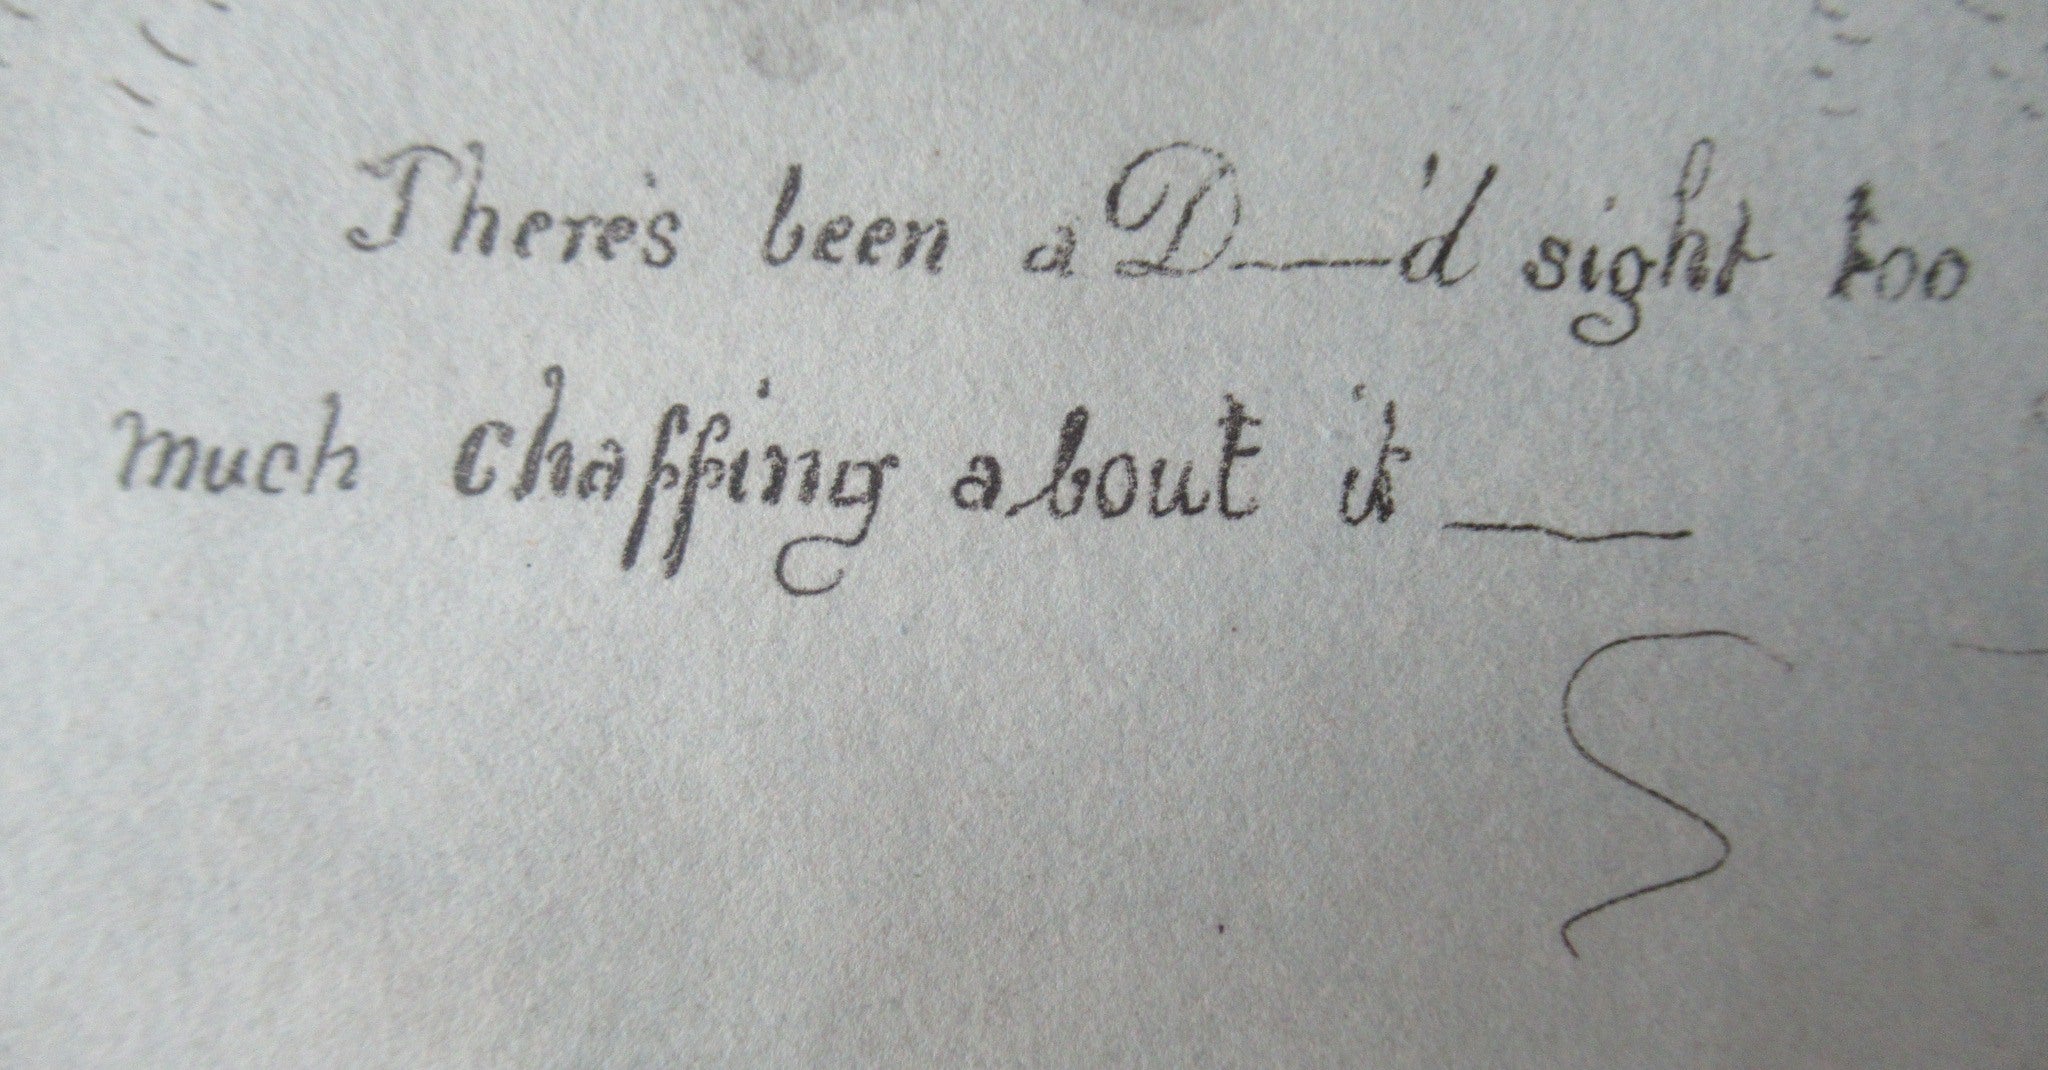 There's been a D——'d sight too
much chaffing about it ——